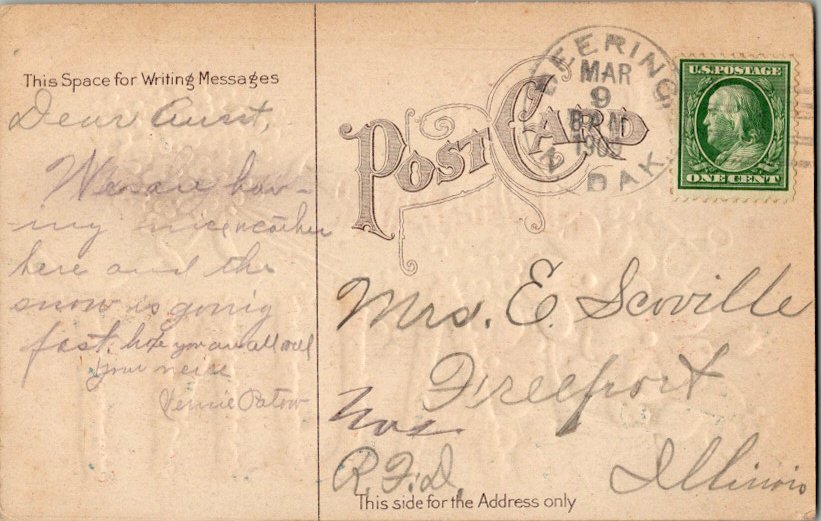 This Space for Writing Messages
Dear Aunt,
We are hav-
ing nice weather
here and the
snow is going
fast. hope you are all well
your neice
Jennie
POST CARD
DEERING
MAR
9
N. DAK.
U.S. POSTAGE
ONE CENT
Mrs. E. Scoville
Freeport
No 2
R.F.D.
Illinois
This side for the Address only